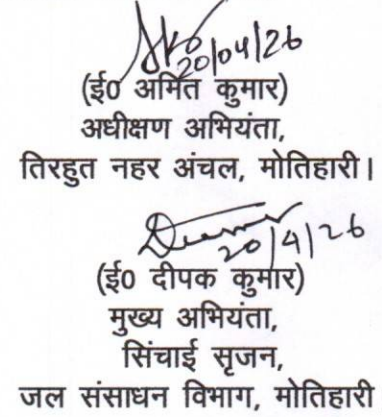 20/04/26
(ई० अमित कुमार)
अधीक्षण अभियंता,
तिरहुत नहर अंचल, मोतिहारी।
20/4/26
(ई० दीपक कुमार)
मुख्य अभियंता,
सिंचाई सृजन,
जल संसाधन विभाग, मोतिहारी